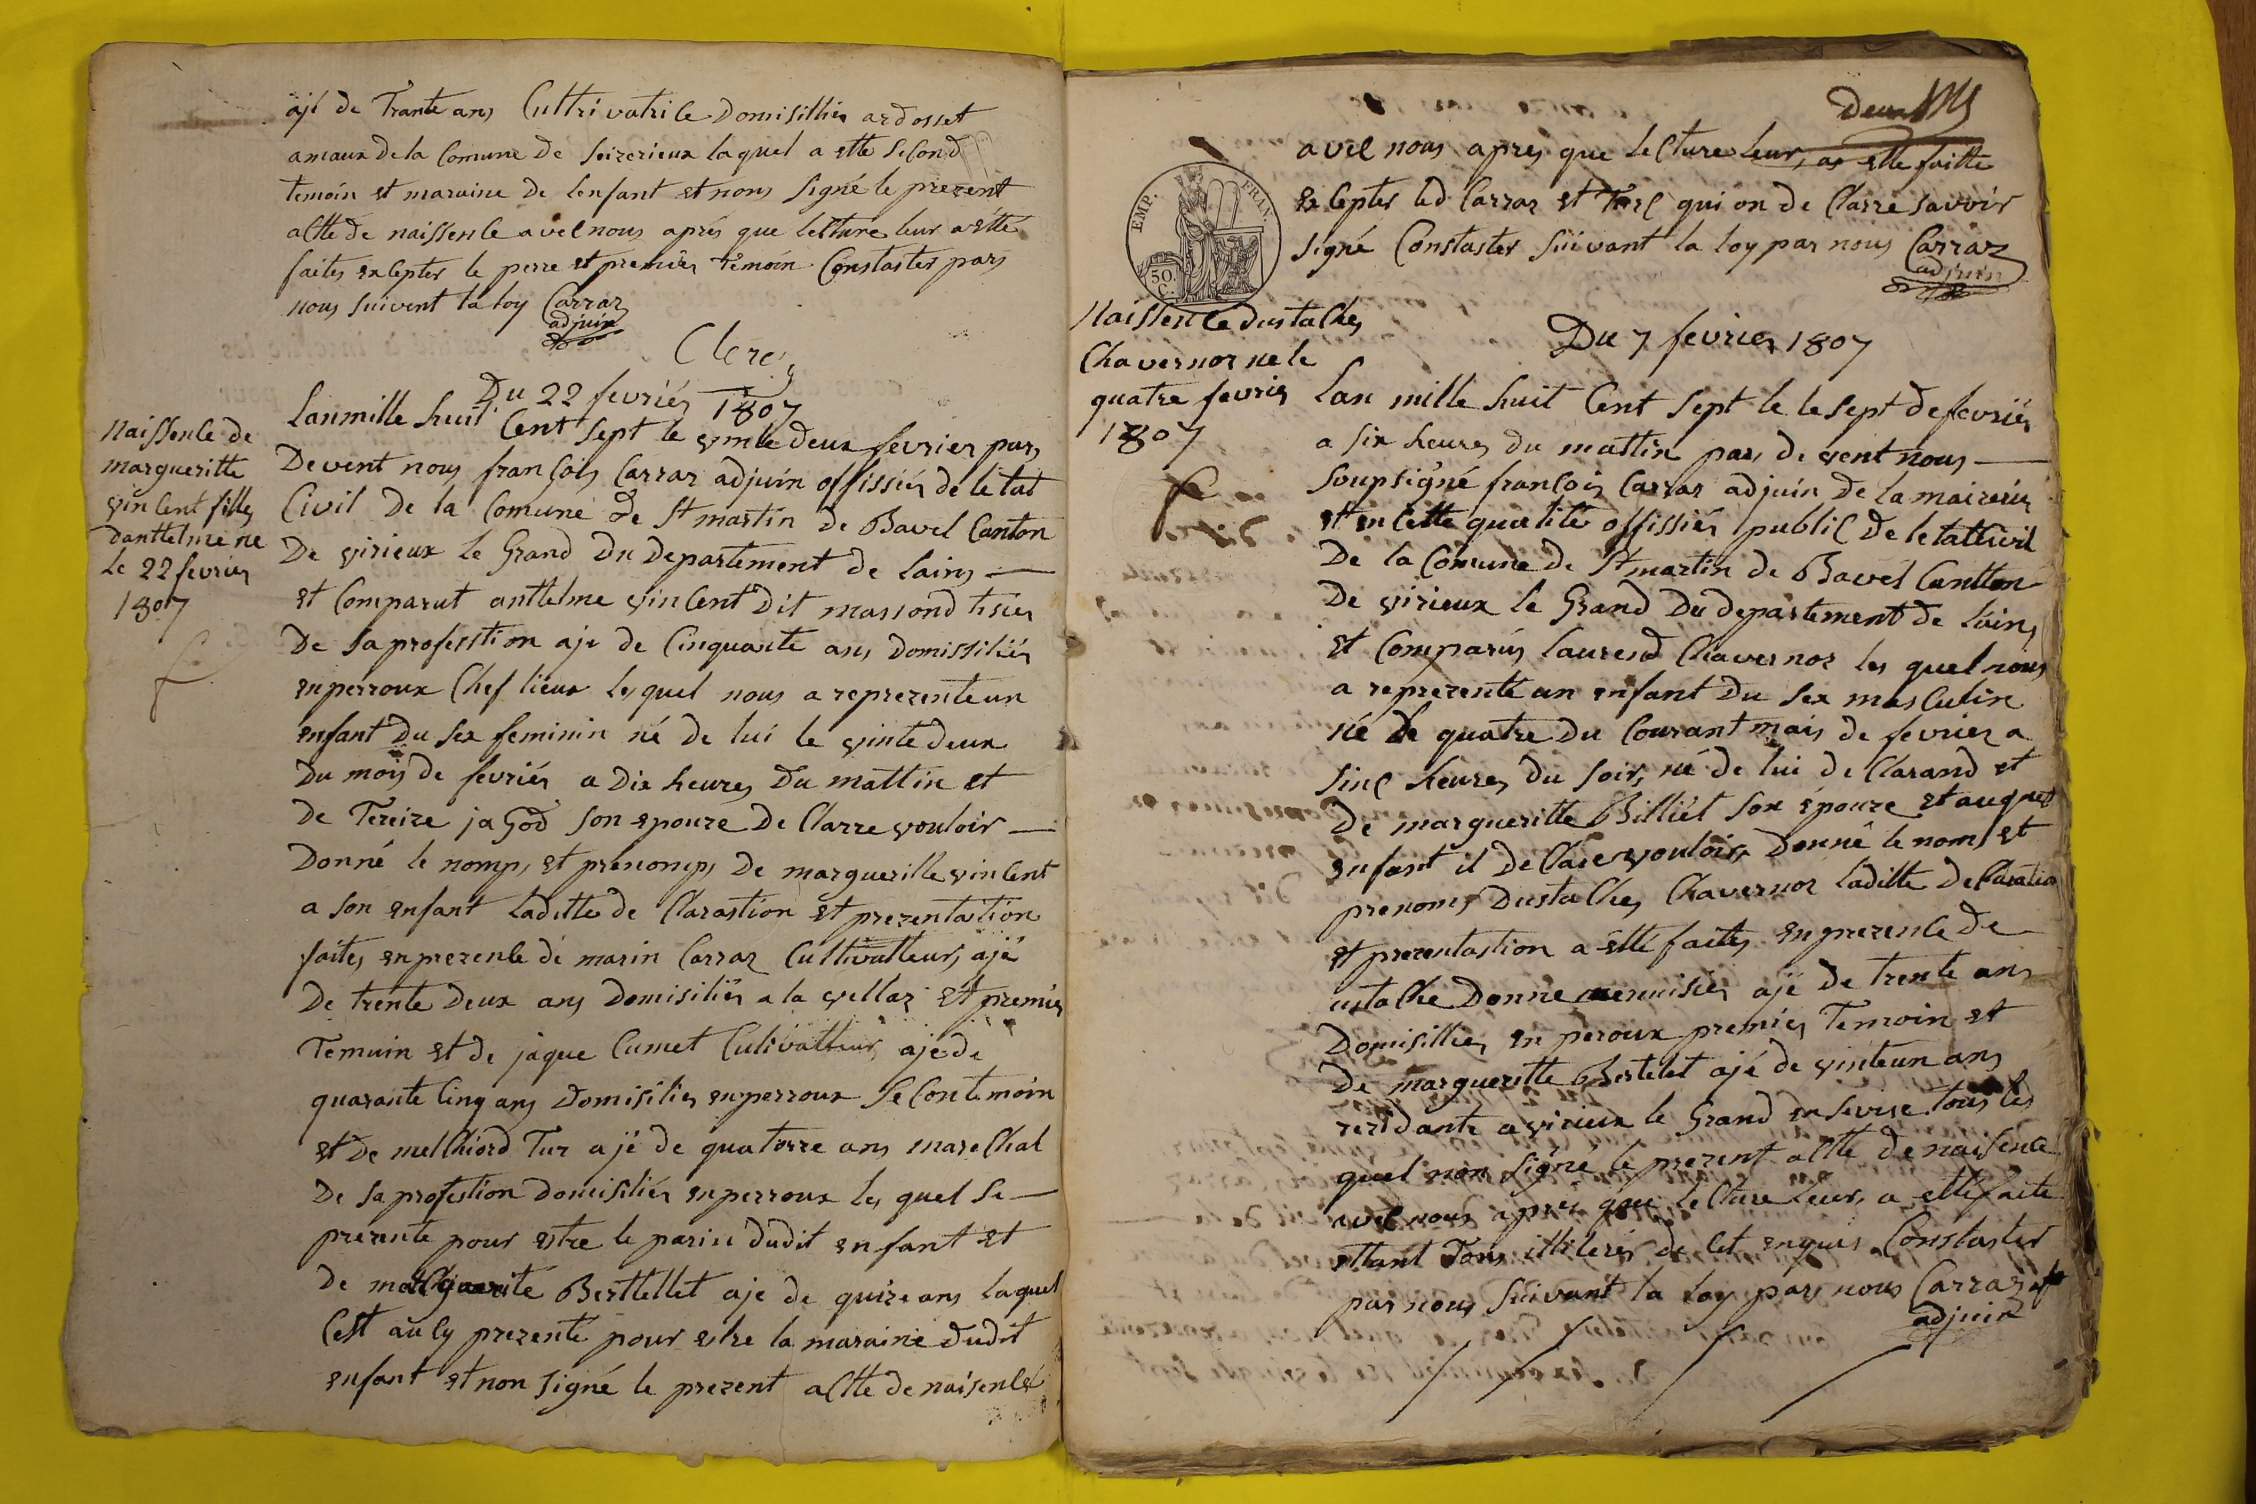 ajé de Trante ans Culttrivatrice Domisilliés ardosset
amaux de la Comune de Seizerieux laquel a ette Second
temoin et maraine de lenfant et nons Signé le prezent
actte de naissence avec nous aprés que lectture leur a etté
faites excepter le perre et premiér temoin Constaster par
nous suivent la loy Carraz
adjuin
Clerc
Du 22 fevriér 1807
Naissence de
margueritte
vincent fille
danttelme ne
le 22 fevrier
1807
Lan mille huit Cent Sept le vinte deux fevrier par
Devent nous françois Carraz adjuin offissiér de letat
Civil De la Comune De St martin de Bavel Canton
De virieux le Grand Du Departement de lains
et Comparut anttelme vincent Dit massond tisier
De sa professtion aje de Cinquante ans Domissiliér
enperroux Chef lieux lequel nous a reprezente un
enfant Du Sex feminin né de lui le vinte deux
Du mois de fevriér a Dix heures Du mattin et
de Tereize jaGod son epouze De Clarre vouloir
Donné le nomp, et prenomp, De margueritte vincent
a son enfant laditte de Clarastion et prezentastion
faites enprezence de marin Carraz Culttivatteur, ajé
De trente Deux ans Domisiliér a la vellaz et premier
Temuin et de jaque Cumet Cultivatteur, aje de
quarante Cinq ans Domisilier enperroux Se Con temoin
et De melChiord Tur ajé de quatorre ans mareChal
De sa profestion Domisiliér enperroux les quel Se
prezente pour estre le parin dudit enfant et
de marguerite Berttellet aje de quize ans laquel
Cest aucy prezenté pour estre la maraine dudit
enfant et non signé le prezent actte de naisence
Deux
avec nous apres que lectture leur, as ette faitte
excepter led Carraz et Turc qui on de Clarre savoir
signé Constaster Suivant la loy par nous Carraz
adjuin
EMP. FRAN.
50. C.
Naissence dustaches
Chavernoz ne le
quatre fevrier
1807
Du 7 fevrier 1807
Lan mille huit Cent Sept le le sept de fevriér
a six heures du mattin par, de vent nous
Soupsigné françois Carraz adjuin de la mairerie
et en Cette qualité offissiér public de letat Civil
De la Comune de St martin de Bavél Cantton
De virieux le Grand Du departement de lains
et Comparus laurend Chavernoz les quel nous
a reprezenté un enfant Du Sex mas Culin
né le quatre du Courant mais de fevrier a
Sinc heures du soir, né de lui de Clarand et
De margueritte Billiét son épouze et auquel
enfant il de Clare vouloir, Donné le nom, et
prenom, Dustaches Chavernoz laditte de Claration
et prezentastion a étté faites enprezence de
ustache Donne menuisier ajé de trente ans
Domisillier en peroux premier Temoin et
De margueritte Bertelet ajé de vinteun ans
rezidante a virieux le Grand en Sevise tous les
quel non Signé le prezent actte de naisence
avec nous aprés que lectture leur, a etté faite
ettant Tous illiterés de Cet enquis Constaster
par nous Suivant la loy par nous Carraz
adjuin